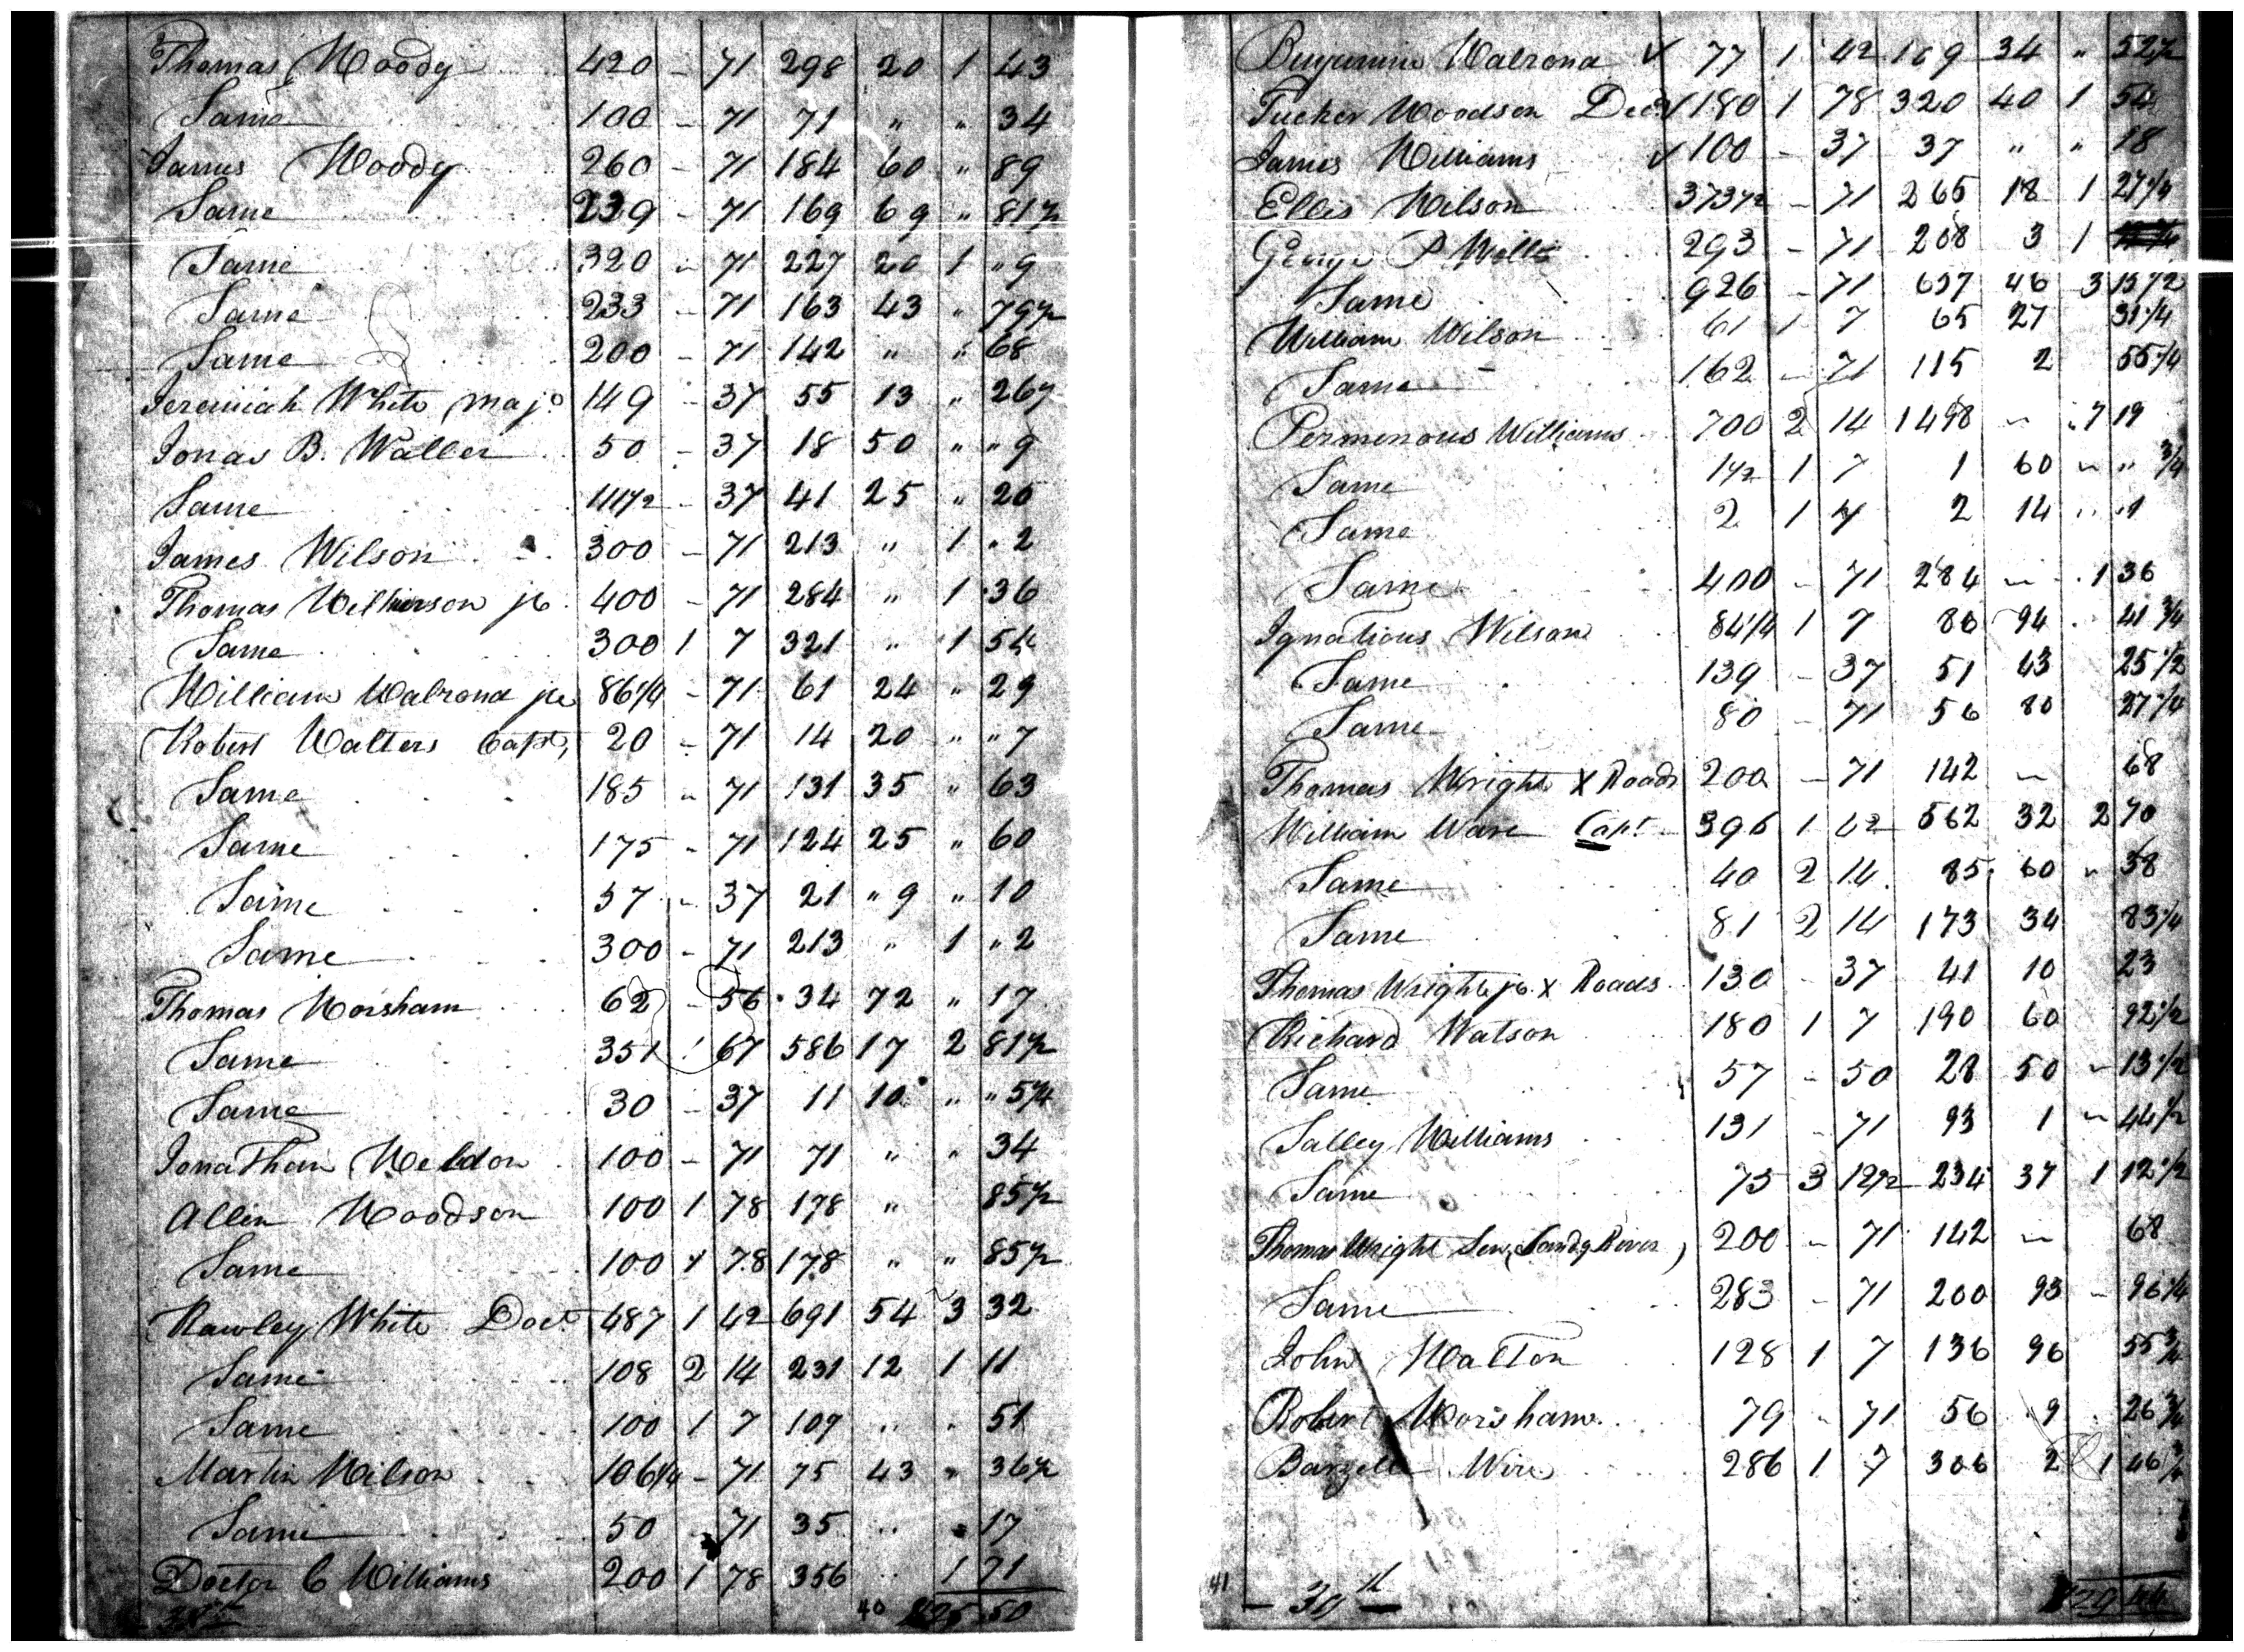 Thomas Moody 420 - 71 298 20 1 43
Same 100 - 71 71 " " 34
James Moody 260 - 71 184 60 " 89
Same 239 - 71 169 69 " 81 1/2
Same 320 - 71 227 20 1 " 9
Same 233 - 71 163 43 " 79 1/2
Same 200 - 71 142 " " 68
Jeremiah White majr 149 - 37 55 13 " 26 1/2
Jonas B. Waller 50 - 37 18 50 " " 9
Same 111 1/2 - 37 41 25 " 20
James Wilson 300 - 71 213 " 1 " 2
Thomas Wilkinson jr 400 - 71 284 " 1 36
Same 300 1 7 321 " 1 54
William Walrond jr 86 1/4 - 71 61 24 " 29
Robert Walters Capt, 20 - 71 14 20 " " 7
Same 185 - 71 131 35 " 63
Same 175 - 71 124 25 " 60
Same 57 - 37 21 " 9 " 10
Same 300 - 71 213 " 1 " 2
Thomas Worsham 62 - 56 34 72 " 17
Same 351 1 67 586 17 2 81 1/2
Same 30 - 37 11 10 " " 5 1/4
Jonathan Weldon 100 - 71 71 " " 34
Allen Woodson 100 1 78 178 " 85 1/2
Same 100 1 78 178 " " 85 1/2
Rawley White Doct. 487 1 42 691 54 3 32
Same 108 2 14 231 12 1 11
Same 100 1 7 107 " " 51
Martin Wilson 106 1/4 - 71 75 43 " 36 1/2
Same 50 - 71 35 " " 17
Doctor C Williams 200 1 78 356 " 1 71
40 25 50
Benjamin Walrond ✓ 77 1 42 109 34 " 52 1/2
Tucker Woodson Decd ✓ 180 1 78 320 40 1 54
James Williams ✓ 100 - 37 37 " " 18
Ellis Wilson 373 1/2 - 71 265 18 1 27 1/4
George P Wells 293 - 71 208 3 1
Same 926 - 71 657 46 3 15 1/2
William Wilson 61 1 7 65 27 31 1/4
Same 162 - 71 115 2 55 1/4
Permenous Williams 700 2 14 1498 - 7 19
Same 1 1/2 1 7 1 60 " " 3/4
Same 2 1 7 2 14 " " 1
Same 400 - 71 284 - 1 36
Ignatious Wilson 84 1/4 1 7 86 94 41 3/4
Same 139 - 37 51 43 25 1/2
Same 80 - 71 56 80 27 1/4
Thomas Wright X Roads 200 - 71 142 - 68
William Ware Capt 396 1 42 562 32 2 70
Same 40 2 14 85 60 " 38
Same 81 2 14 173 34 83 1/4
Thomas Wright jr X Roads 130 - 37 41 10 23
Richard Watson 180 1 7 190 60 92 1/2
Same 57 - 50 28 50 - 13 1/2
Salley Williams 131 - 71 93 1 - 44 1/2
Same 75 3 12 1/2 234 37 1 12 1/2
Thomas Wright Sen (Sandy River) 200 - 71 142 - 68
Same 283 - 71 200 93 - 96 1/4
John Walton 128 1 7 136 96 55 3/4
Robert Worsham 79 - 71 56 9 26 3/4
Barzella Wire 286 1 7 306 2 1 46 3/4
41 - 39th -